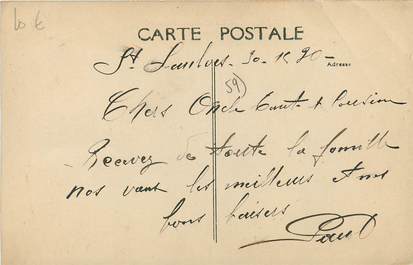 10 €
CARTE POSTALE
St Saulve 30
Adresse
59)
Chers Oncle Tante & Cousine
Recevez de toute la famille
nos vœux les meilleurs et nos
bons baisers
Paul